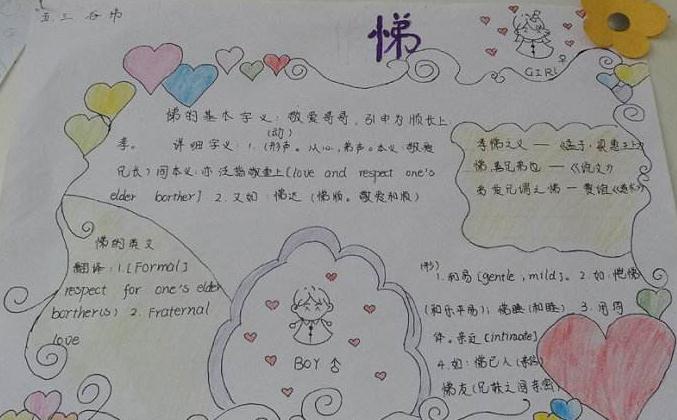 五三
悌
GIRL♀
悌的基本字义：敬爱哥哥，引申为顺长上
(动)
孝。详细字义：1.(形声。从心，弟声。本义：敬爱
兄长)同本义；亦泛指敬重长上[love and respect one's
elder borther] 2.又如：悌达(悌顺。敬爱和顺)
孝悌之义——《孟子·梁惠王上》
悌，善兄弟也——《说文》
弟爱兄谓之悌—贾谊《道术》
悌的英文
翻译：1.[Formal]
respect for one's elder
borther(s) 2. Fraternal
love
BOY ♂
(形)
1.和易[gentle, mild]。2.如：恺悌
(和乐平易)；悌睦(和睦) 3.用同
体。亲近[intimate]
4.如：悌己人
悌友(兄弟之间亲密